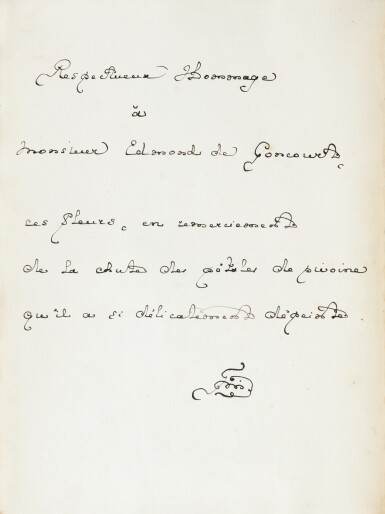 Respectueux Hommage
à
Monsieur Edmond de Goncourt,
ces fleurs, en remerciements
de la chute des pétales de pivoine
qu'il a si délicatement dépeinte.